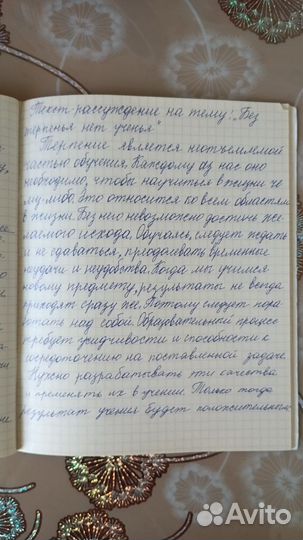 Текст-рассуждение на тему: „Без
терпенья нет ученья"
Терпение является неотъемлемой
частью обучения. Каждому из нас оно
необходимо, чтобы научиться в жизни че
му-либо. Это относится ко всем областям
в жизни. Без него невозможно достичь же-
лаемого исхода. Обучаясь, следует ждать
и не сдаваться, преодолевать временные
неудачи и неудобства. Когда мы учимся
новому предмету, результаты не всегда
приходят сразу же. Потому следует пора
ботать над собой. Образовательный процесс
требует усидчивости и способности к
сосредоточению на поставленной задаче.
Нужно разрабатывать эти качества
и применять их в учении. Только тогда
результат учения будет положительным.
Avito